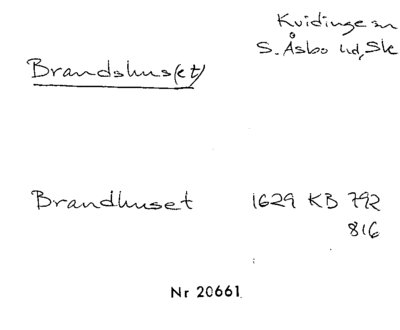 Kvidinge sn
S. Åsbo hd, Sk
Brandshus(et)
Brandhuset 1629 KB 792
816
Nr 20661